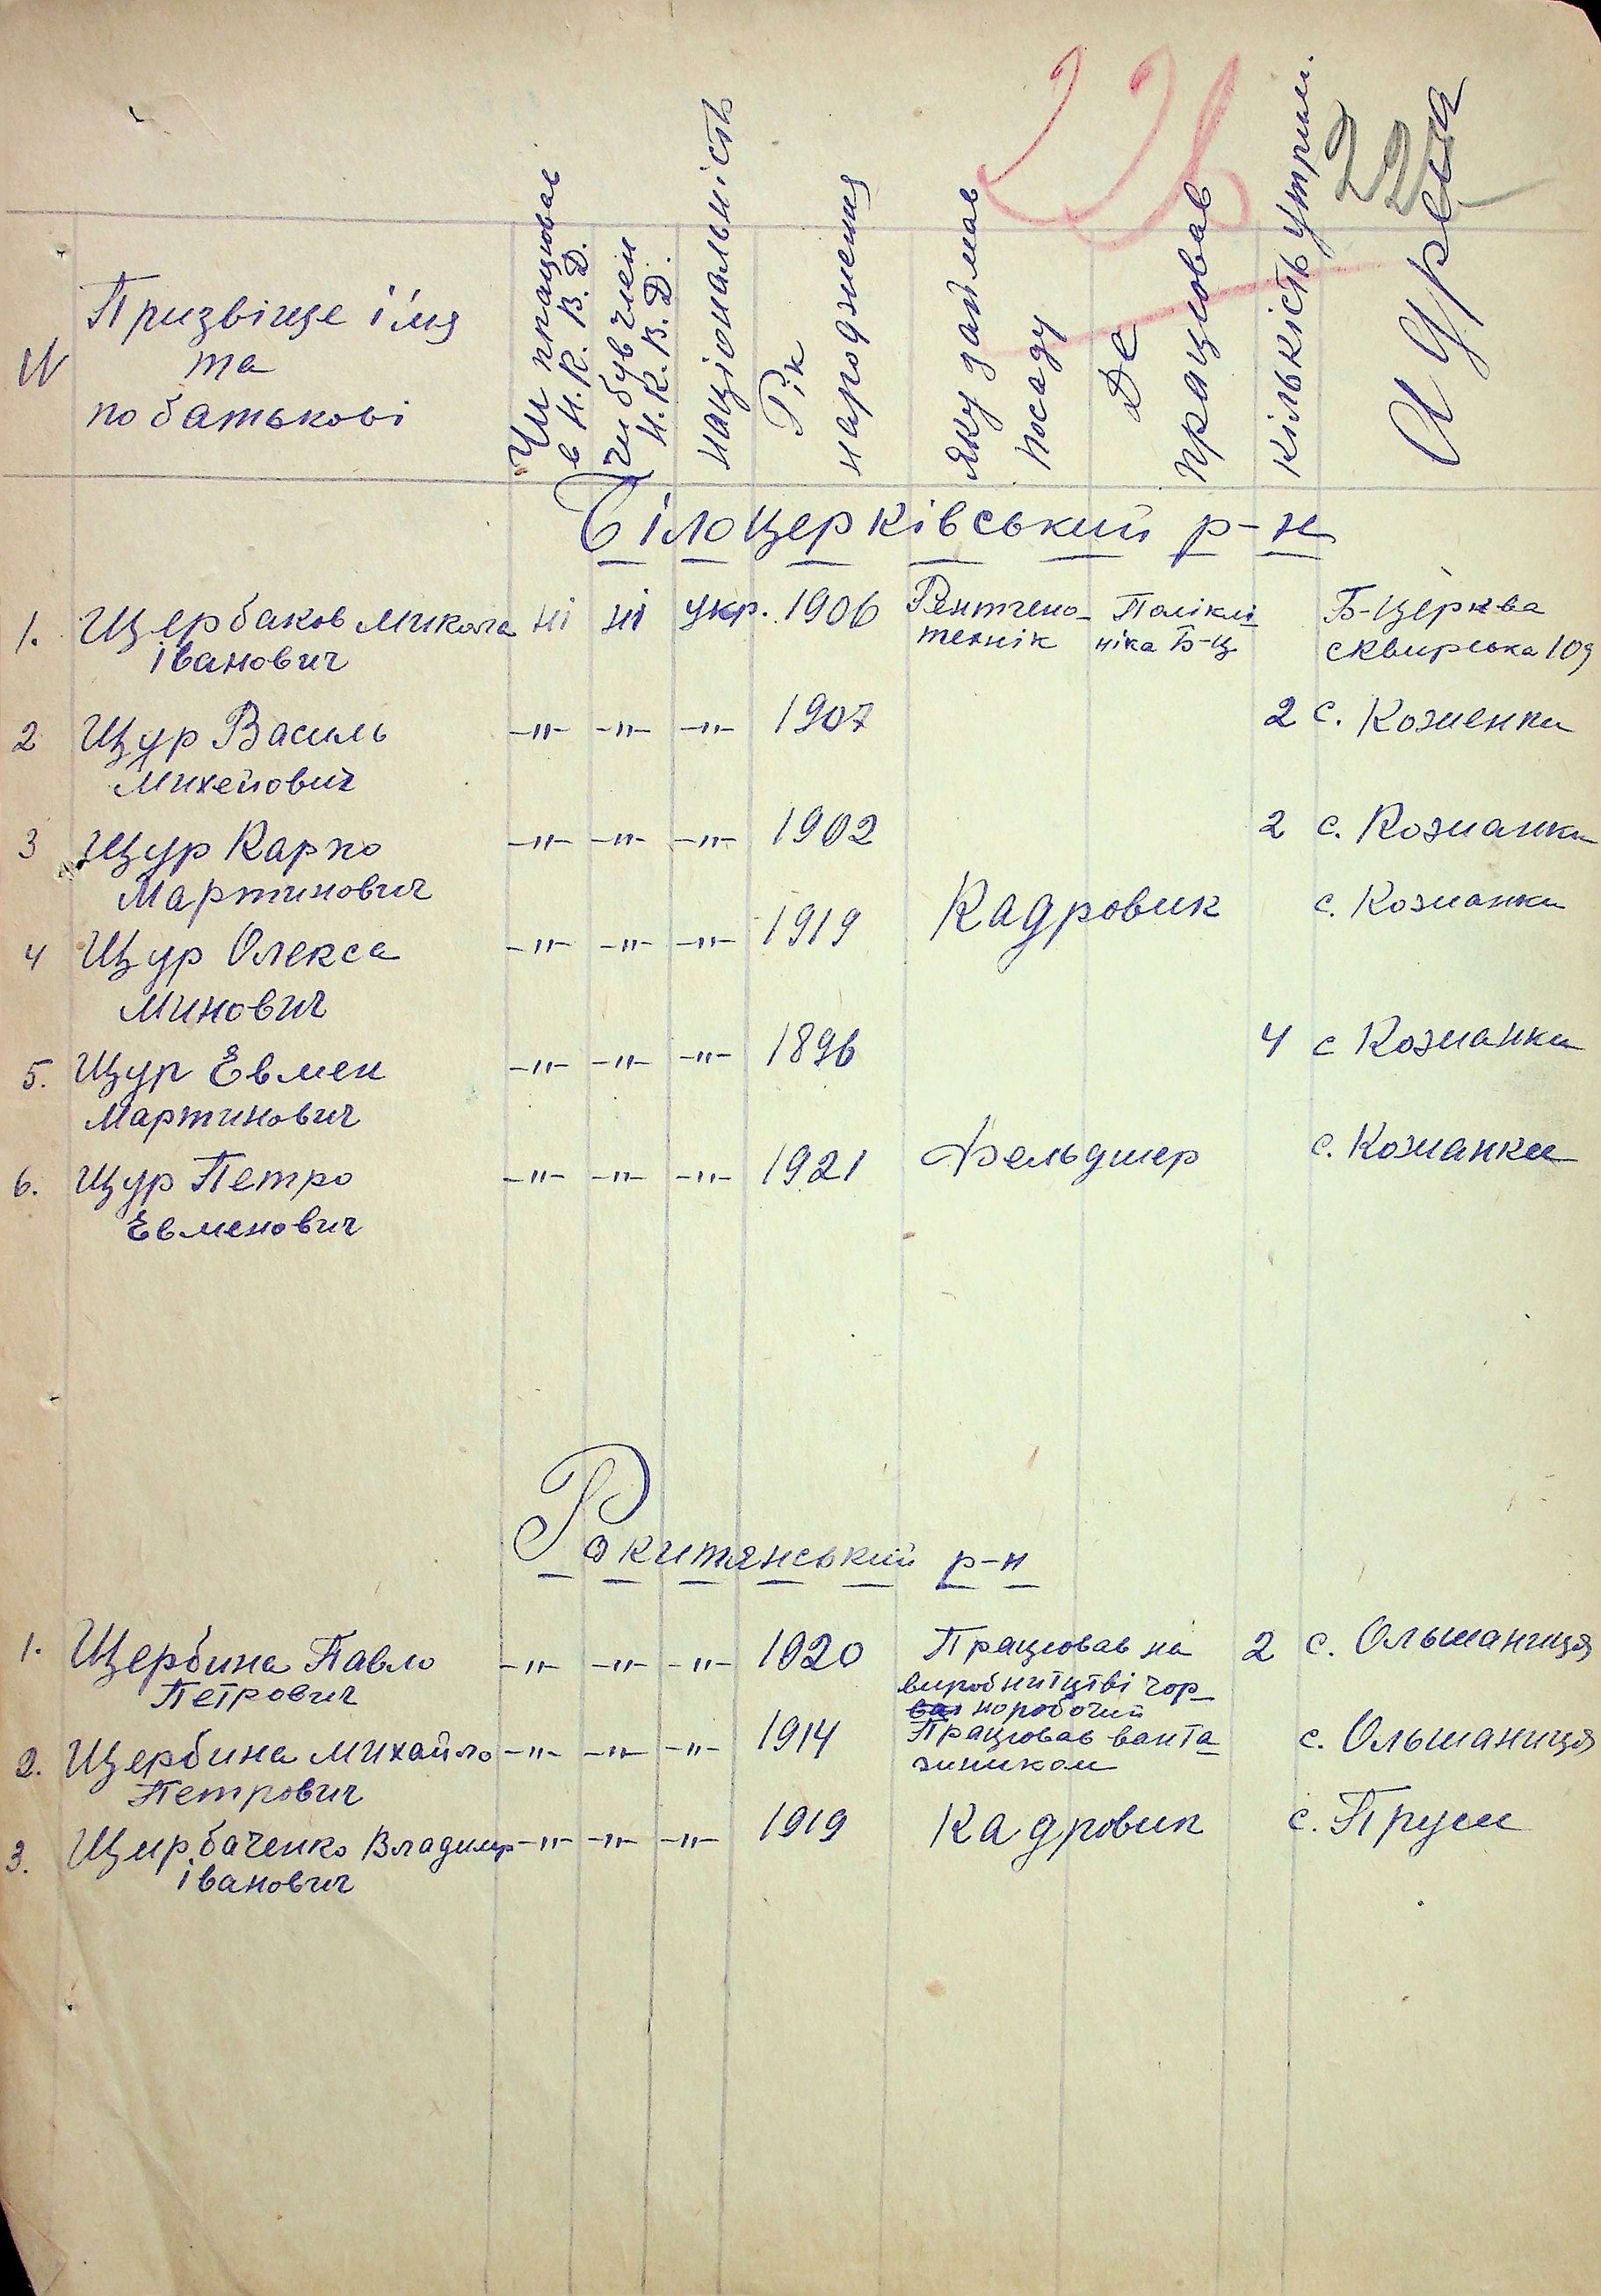 22
N
Призвіще і імя
та
по батькові
Чи працював
в Н.К.В.Д.
Чи був член
Н.К.В.Д.
національність
Рік
народження
Яку займав
посаду
Де
працював
кількість утрим.
Адреса
Білоцерківський р-н
1. Щербаков Микола ні ні укр. 1906 Рентгено- Полікл̲і̲ Б-Церква
Іванович технік ніка Б-Ц Сквирська 109
2 Щур Василь -"- -"- -"- 1907 2 с. Коженки
Михейович
3 Щур Карпо -"- -"- -"- 1902 2 с. Кожанки
Мартинович
4 Щур Олекса -"- -"- -"- 1919 Кадровик с. Кожанки
Минович
5. Щур Евмен -"- -"- -"- 1896 4 с Кожанки
Мартинович
6. Щур Петро -"- -"- -"- 1921 Фельдшер с. Кожанки
Евменович
Рокитянський р-н
1. Щербина Павло -"- -"- -"- 1920 Працював на 2 с. Ольшаниця
Петрович виробництві чор-
норобочий
2. Щербина Михайло -"- -"- -"- 1914 Працював ванта- с. Ольшаниця
Петрович жником
3. Щирбаченко Владимир -"- -"- -"- 1919 Кадровик с. Пруси
Іванович